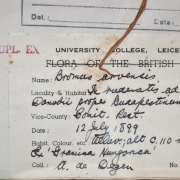 Dat
UPL. EX
UNIVERSITY COLLEGE, LEICE
FLORA OF THE BRITISH
Name: Bromus arvensis
Locality & Habitat: In ruderatis ad
Danubii prope Budapestinum
Vice-County: Comit. Pest.
Date: 12 July 1899
Habit, Colour, etc. alt. c. 110 m
Ex "Gramina Hungarica
Coll.: A. de Degen